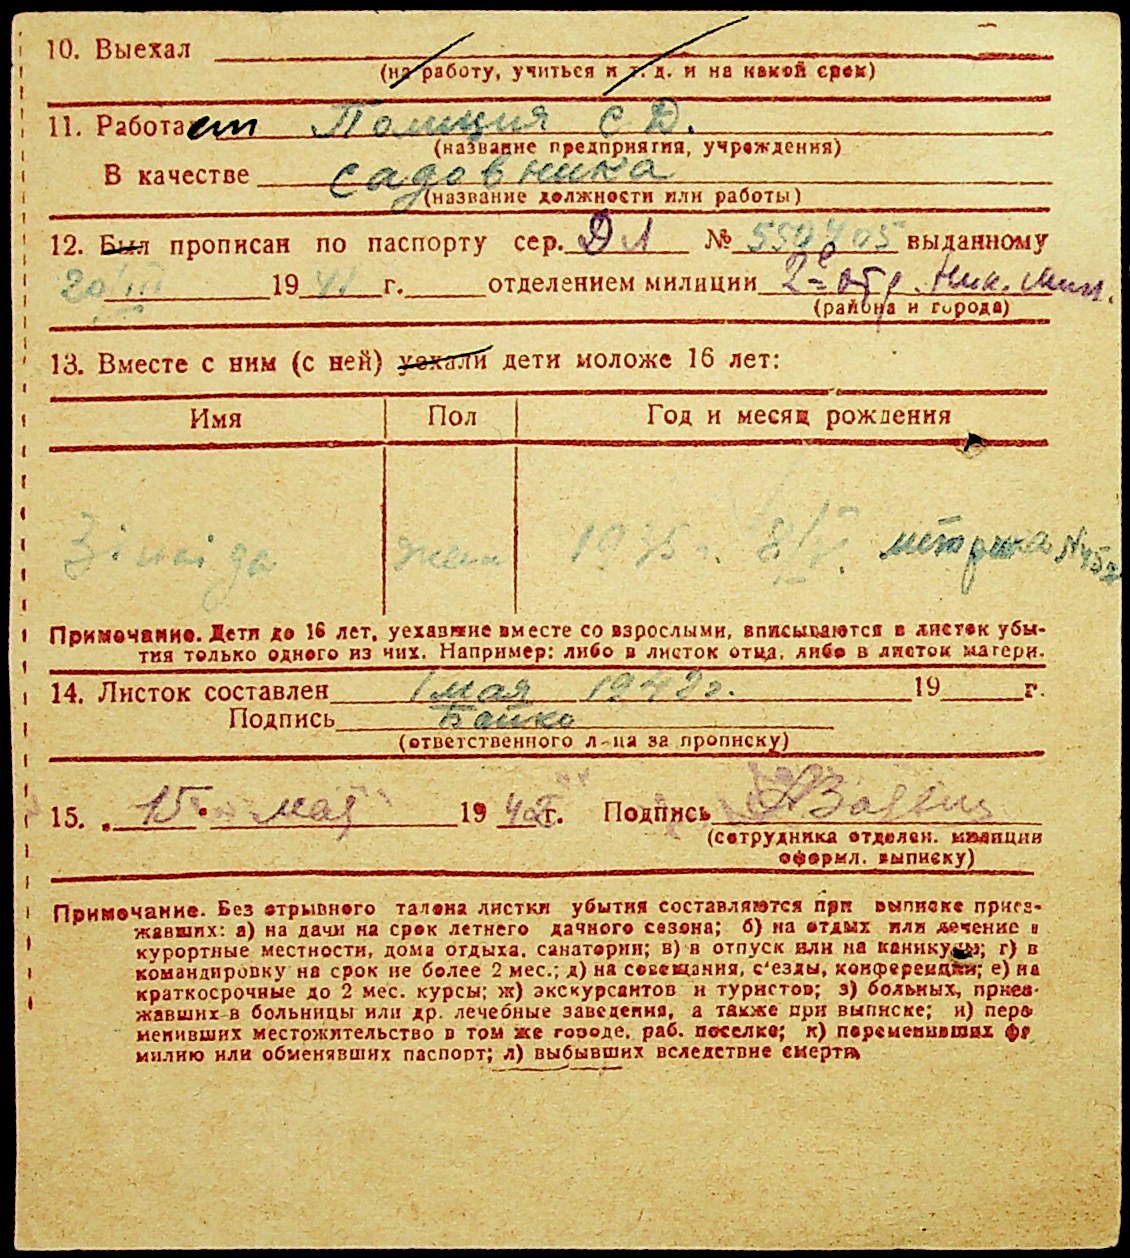 10. Выехал
(на работу, учиться и т. д. и на какой срок)
11. Работает Полиция С Д.
(название предприятия, учреждения)
В качестве садовника
(название должности или работы)
12. Был прописан по паспорту сер. ДЛ № 550405 выданному
20/III 1941 г. отделением милиции 2е отд. Ник. мил.
(района и города)
13. Вместе с ним (с ней) уехали дети моложе 16 лет:
Имя Пол Год и месяц рождения
Зінаіда жен 1935 г. 8/V. метрика №
Примечание. Дети до 16 лет, уехавшие вместе со взрослыми, вписываются в листок убы-
тия только одного из них. Например: либо в листок отца, либо в листок матери.
14. Листок составлен 1 мая 1942 г. 19 г.
Подпись Бойко
(ответственного лица за прописку)
15. „15" мая 1942 г. Подпись
(сотрудника отделен. милиции
оформл. выписку)
Примечание. Без отрывного талона листки убытия составляются при выписке приез-
жавших: а) на дачи на срок летнего дачного сезона; б) на отдых или лечение в
курортные местности, дома отдыха, санатории; в) в отпуск или на каникулы; г) в
командировку на срок не более 2 мес.; д) на совещания, с'езды, конференции; е) на
краткосрочные до 2 мес. курсы; ж) экскурсантов и туристов; з) больных, приез-
жавших в больницы или др. лечебные заведения, а также при выписке; и) пере
менивших местожительство в том же городе, раб. поселке; к) переменивших фа
милию или обменявших паспорт; л) выбывших вследствие смерти